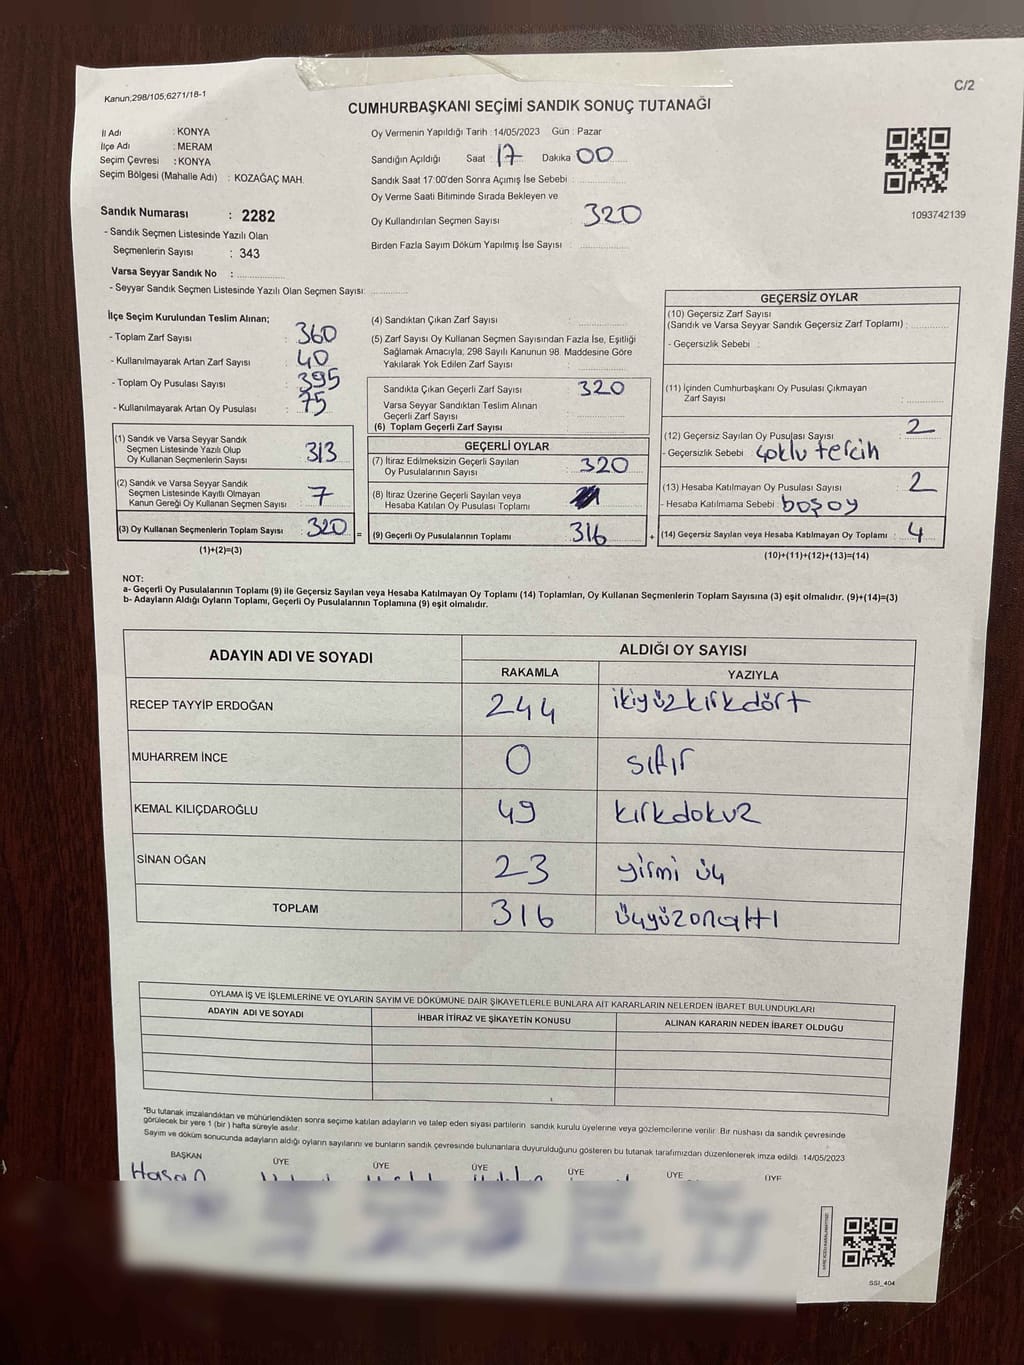 Kanun;298/105;6271/18-1
C/2
CUMHURBAŞKANI SEÇİMİ SANDIK SONUÇ TUTANAĞI
İl Adı : KONYA
İlçe Adı : MERAM
Seçim Çevresi : KONYA
Seçim Bölgesi (Mahalle Adı) : KOZAĞAÇ MAH.
Sandık Numarası : 2282
- Sandık Seçmen Listesinde Yazılı Olan
Seçmenlerin Sayısı : 343
Varsa Seyyar Sandık No :
- Seyyar Sandık Seçmen Listesinde Yazılı Olan Seçmen Sayısı:
Oy Vermenin Yapıldığı Tarih : 14/05/2023 Gün : Pazar
Sandığın Açıldığı Saat 17 Dakika 00
Sandık Saat 17:00'den Sonra Açımış İse Sebebi :
Oy Verme Saati Bitiminde Sırada Bekleyen ve
Oy Kullandırılan Seçmen Sayısı : 320
Birden Fazla Sayım Döküm Yapılmış İse Sayısı :
1093742139
İlçe Seçim Kurulundan Teslim Alınan;
- Toplam Zarf Sayısı : 360
- Kullanılmayarak Artan Zarf Sayısı : 40
- Toplam Oy Pusulası Sayısı : 395
- Kullanılmayarak Artan Oy Pusulası : 75
(1) Sandık ve Varsa Seyyar Sandık
Seçmen Listesinde Yazılı Olup
Oy Kullanan Seçmenlerin Sayısı : 313
(2) Sandık ve Varsa Seyyar Sandık
Seçmen Listesinde Kayıtlı Olmayan
Kanun Gereği Oy Kullanan Seçmen Sayısı : 7
(3) Oy Kullanan Seçmenlerin Toplam Sayısı : 320
(1)+(2)=(3)
(4) Sandıktan Çıkan Zarf Sayısı :
(5) Zarf Sayısı Oy Kullanan Seçmen Sayısından Fazla İse, Eşitliği
Sağlamak Amacıyla; 298 Sayılı Kanunun 98. Maddesine Göre
Yakılarak Yok Edilen Zarf Sayısı :
Sandıkta Çıkan Geçerli Zarf Sayısı : 320
Varsa Seyyar Sandıktan Teslim Alınan
Geçerli Zarf Sayısı :
(6) Toplam Geçerli Zarf Sayısı
GEÇERLİ OYLAR
(7) İtiraz Edilmeksizin Geçerli Sayılan
Oy Pusulalarının Sayısı : 320
(8) İtiraz Üzerine Geçerli Sayılan veya
Hesaba Katılan Oy Pusulası Toplamı :
= (9) Geçerli Oy Pusulalarının Toplamı : 316
GEÇERSİZ OYLAR
(10) Geçersiz Zarf Sayısı
(Sandık ve Varsa Seyyar Sandık Geçersiz Zarf Toplamı) :
- Geçersizlik Sebebi :
(11) İçinden Cumhurbaşkanı Oy Pusulası Çıkmayan
Zarf Sayısı :
(12) Geçersiz Sayılan Oy Pusulası Sayısı : 2
- Geçersizlik Sebebi : çoklu tercih
(13) Hesaba Katılmayan Oy Pusulası Sayısı : 2
- Hesaba Katılmama Sebebi : boş oy
+ (14) Geçersiz Sayılan veya Hesaba Katılmayan Oy Toplamı : 4
(10)+(11)+(12)+(13)=(14)
NOT:
a- Geçerli Oy Pusulalarının Toplamı (9) ile Geçersiz Sayılan veya Hesaba Katılmayan Oy Toplamı (14) Toplamları, Oy Kullanan Seçmenlerin Toplam Sayısına (3) eşit olmalıdır. (9)+(14)=(3)
b- Adayların Aldığı Oyların Toplamı, Geçerli Oy Pusulalarının Toplamına (9) eşit olmalıdır.
ADAYIN ADI VE SOYADI
ALDIĞI OY SAYISI
RAKAMLA YAZIYLA
RECEP TAYYİP ERDOĞAN 244 ikiyüzkırkdört
MUHARREM İNCE 0 sıfır
KEMAL KILIÇDAROĞLU 49 kırkdokuz
SİNAN OĞAN 23 yirmi üç
TOPLAM 316 üçyüzonaltı
OYLAMA İŞ VE İŞLEMLERİNE VE OYLARIN SAYIM VE DÖKÜMÜNE DAİR ŞİKAYETLERLE BUNLARA AİT KARARLARIN NELERDEN İBARET BULUNDUKLARI
ADAYIN ADI VE SOYADI İHBAR İTİRAZ VE ŞİKAYETİN KONUSU ALINAN KARARIN NEDEN İBARET OLDUĞU
*Bu tutanak imzalandıktan ve mühürlendikten sonra seçime katılan adayların ve talep eden siyasi partilerin sandık kurulu üyelerine veya gözlemcilerine verilir. Bir nüshası da sandık çevresinde
görülecek bir yere 1 (bir) hafta süreyle asılır.
Sayım ve döküm sonucunda adayların aldığı oyların sayılarını ve bunların sandık çevresinde bulunanlara duyurulduğunu gösteren bu tutanak tarafımızdan düzenlenerek imza edildi. 14/05/2023
BAŞKAN ÜYE ÜYE ÜYE ÜYE ÜYE ÜYE
Hasan
SSI_404